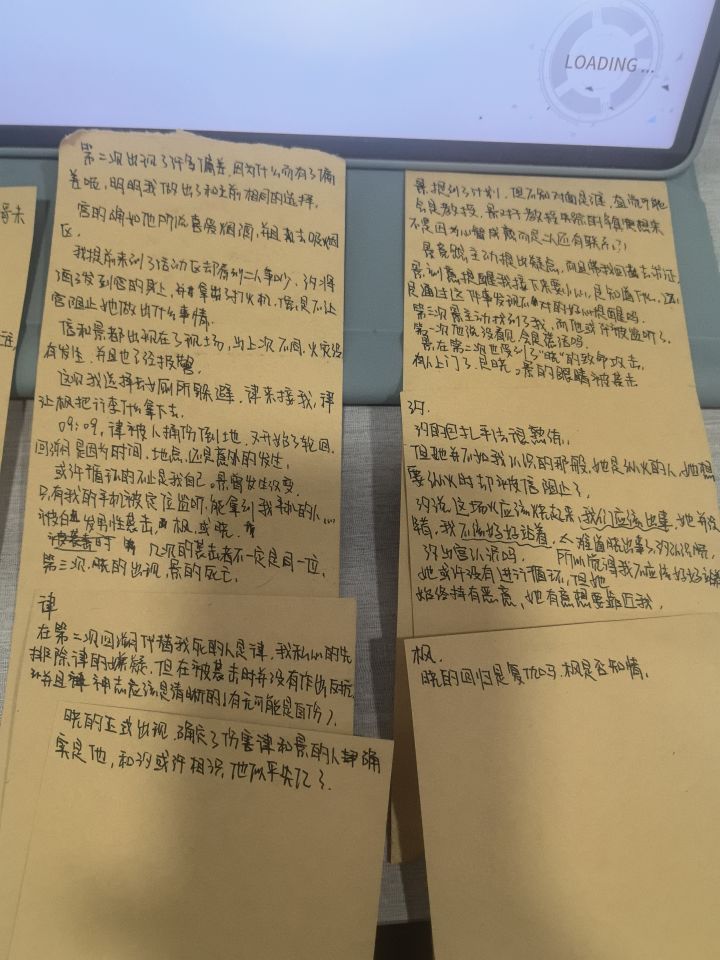 LOADING...
第二次出现了许多偏差,因为什么而有了偏
差呢,明明我做出了和之前相同的选择。
宫的确如他所说喜爱烟酒,并且去吸烟
区。
我提前来到了活动区却看到二人争吵,汐将
酒泼到宫的身上,并拿出了打火机,信是不让
宫阻止她做出什么事情。
信和景都出现在了现场,与上次不同,火灾没
有发生,并且也已经报警
这次我选择去厕所躲避,律来接我,律
让枫把行李什么拿下去。
09:09,律被人捅伤倒地,又开始了轮回。
回溯是因为时间,地点,还是意外的发生。
或许循环的不止是我自己。景需发生改变。
只有我的手机被定位监听,能拿到我手机的人
被白发男性袭击,枫或晓。
被袭击时 几次的袭击者不一定是同一位。
第三次,晓的出现,景的死亡。
律
在第二次回溯代替我死的人是律,我私心的先
排除律的嫌疑,但在被袭击时并没有作出反抗,
并且律神志应该是清晰的(有无可能是自伤)。
晓的正式出现,确定了伤害律和景的人确
实是他,和汐或许相识,他似乎失忆了。
景提到了计划,但不知对面是谁,
会是教授,景对教授
不是因为
景竟然主动提出疑点,而且帮我回去求证,
景刻意提醒我接下来要小心,是知道什么,还
是通过这件事发现不对的好心提醒吗。
第三次景主动找到了我,而他或许被监听了。
第一次他说没看见会是谎话吗。
景在第二次也受到了“晓”的致命攻击。
有人上门了,是晓。景的眼睛被袭击
汐.
汐的包扎手法很熟练。
但她并不如我认识的那般,她是纵火的人,她想
要纵火时却被信阻止了。
汐说,这场火应该烧起来,我们应该出事,她并没
错,我不该好好站着。难道晓出事了,汐认识晓,
汐与宫认识吗。 所以觉得我不应该好好站着
她或许没有进行循环,但她
始终持有恶意,她有意想要靠近我。
枫.
晓的回归是复仇吗,枫是否知情。